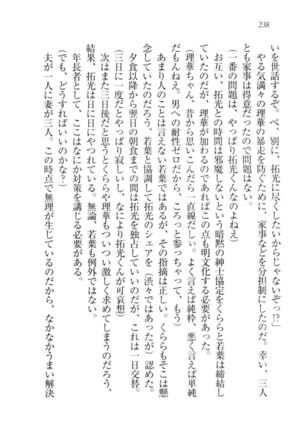 238
いを世話するぞ、べ、別に、拓光に尽くしたいからじゃないぞっ!?」
やる気満々の理華の暴走を防ぐために、家事などを分担制にしたのだ。幸い、三人
とも家事は得意だったので問題はない。
(一番の問題は、やっぱり拓光くんなのよねえ)
お互い、拓光との時間は邪魔しないという暗黙の紳士協定をくららと若葉は締結し
ていたのだが、理華が加わるのであればこの点も明文化する必要があった。
(理華ちゃん、昔から思いこんだら一直線だしい。よく言えば純粋、悪く言えば単純
だもんねえ。男への耐性ゼロだから、ころっと参っちゃって、もう)
あまり人のことは言えない若葉ではあるが、その指摘は正しい。くららもそこは懸
念していたのだろう、若葉と協調して拓光のシェアを(渋々ではあったが)認めた。
夕食以降から翌日の朝食までの間は拓光を独占していいのだが、これは一日交替。
(三日に一度だとやっぱり寂しいし、なにより拓光くんが可哀想)
次はまた三日後だと思うとくららや理華もついつい激しく求めてしまうのだろう、
結果、拓光は日に日にやつれている。無論、若葉も例外ではない。
年長者として、ここはなにか対策を講じる必要がある。
(でも、どうすればいいのかな?)
夫が一人に妻が三人。この時点で無理が生じているのだから、なかなかうまい解決